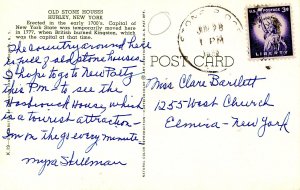 OLD STONE HOUSES
HURLEY, NEW YORK
Erected in the early 1700's. Capital of
New York State was temporarily moved here
in 1777, when British burned Kingston, which
was the capital at that time.
The country around here
is full of old stone houses.
I hope to go to New Paltz
this P.M. to see the
Hasbrouck House, which
is a tourist attraction-
I'm on the go every minute.
Myra Stillman
POST CARD
PM
3¢
LIBERTY
Miss Clare Bartlett
1255 West Church
Elmira - New York